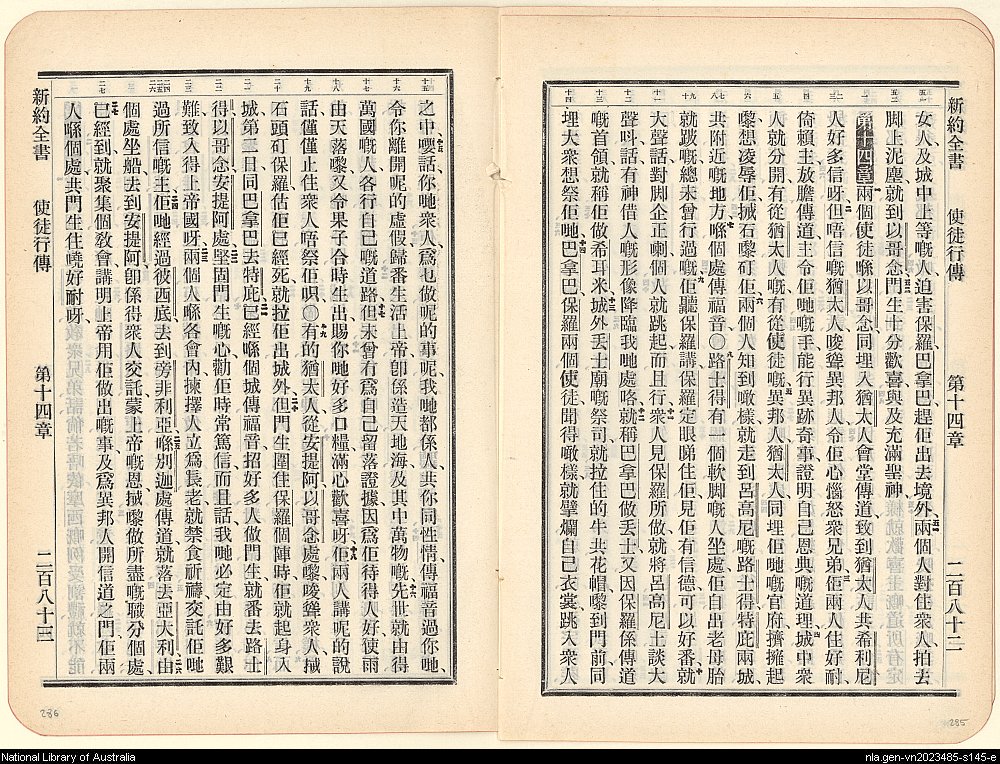 新約全書 使徒行傳 第十四章 二百八十二
女人及城中上等嘅人迫害保羅巴拿巴趕佢出去境外兩個人對住衆人拍去
脚上泥塵就到以哥念門生十分歡喜與及充滿聖神
第十四章兩個使徒喺以哥念同埋入猶太人會堂傳道致到猶太人共希利尼
人好多信呀但唔信嘅猶太人唆聳異邦人令佢心惱怒衆兄弟佢兩人住好耐
倚賴主放膽傳道主令佢哋嘅手能行異跡奇事證明自己恩典嘅道理城中衆
人就分開有從猶太人嘅有從使徒嘅異邦人猶太人同埋佢哋嘅官府擠擁起
嚟想凌辱佢搣石嚟矴佢兩個人知到噉樣就走到呂高尼嘅路士得特庇兩城
共附近嘅地方喺個處傳福音〇路士得有一個軟脚嘅人坐處佢自出老母胎
就跛嘅總未曾行過嘅佢聽保羅講保羅定眼睇住佢見佢有信德可以好番就
大聲話對脚企正喇個人就跳起而且行衆人見保羅所做就將呂高尼土談大
聲呌話有神借人嘅形像降臨我哋處咯就稱巴拿巴做丢士又因保羅係傳道
嘅首領就稱佢做希耳米城外丢士廟嘅祭司就拉住的牛共花帽嚟到門前同
埋大衆想祭佢哋巴拿巴保羅兩個使徒聞得噉樣就擘爛自己衣裳跳入衆人
之中嚶話你哋衆人爲乜做呢的事呢我哋都係人共你同性情傳福音過你哋
令你離開呢的虛假歸番生活上帝卽係造天地海及其中萬物嘅先世就由得
萬國嘅人各行自己嘅道路但未曾有爲自己留落證據因爲佢待得人好使雨
由天落嚟又令果子合時生出賜你哋好多口糧滿心歡喜呀佢兩人講呢的說
話僅僅止住衆人唔祭佢唄〇有的猶太人從安提阿以哥念處嚟唆聳衆人搣
石頭矴保羅估佢已經死就拉佢出城外但門生圍住保羅個陣時佢就起身入
城第二日同巴拿巴去特庇已經喺個城傳福音招好多人做門生就番去路士
得以哥念安提阿處堅固門生嘅心勸佢時常篤信而且話我哋必定由好多艱
難致入得上帝國呀兩個人喺各會內揀擇人立爲長老就禁食祈禱交託佢哋
過所信嘅主佢哋經過彼西底去到旁非利亞喺別迦處傳道就落去亞大利由
個處坐船去到安提阿卽係得衆人交託蒙上帝嘅恩搣嚟做所盡嘅職分個處
已經到就聚集個敎會講明上帝用佢做出嘅事及爲異邦人開信道之門佢兩
人喺個處共門生住嘵好耐呀
新約全書 使徒行傳 第十四章 二百八十三
286
285
National Library of Australia
nla.gen-vn2023485-s145-e